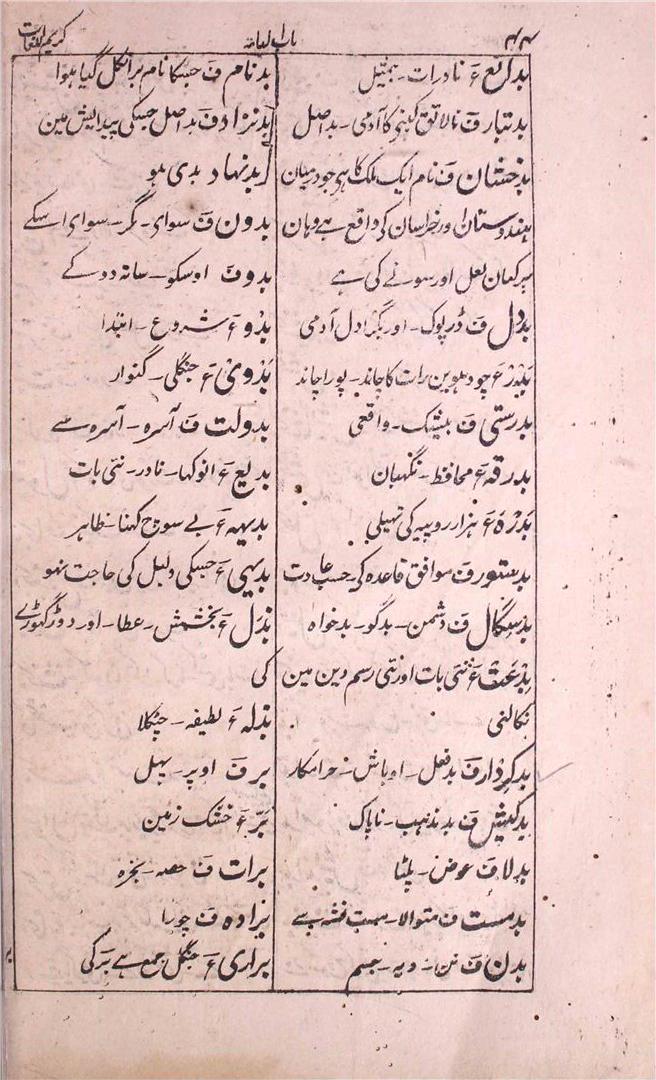 ۴۴
باب الباء
کریم اللغات
بدائع ع نادرات۔ بیمثیل
بدتبار ف نالائق کنبہ کا آدمی۔ بداصل
بدخشان ف نام ایک ملک کا ہی جو درمیان
ہندوستان اور خراسان کی واقع ہے وہان
کان لعل اور سونے کی ہے
بددل ف ڈرپوک۔ اور بگڑا دل آدمی
بدر ع چودہوین رات کا چاند۔ پورا چاند
بدرستی ف بیشک۔ واقعی
بدرقہ ع محافظ۔ نگہبان
بدرہ ع ہزار روپیہ کی تہیلی
بدستور ف موافق قاعدہ کی حسب عادت
بدسگال ف دشمن۔ بدگو۔ بدخواہ
بدعت ع نئی بات اور نئی رسم دین مین
نکالنی
بدکردار ف بدفعل۔ اوباش۔ حرامکار
بدکیش ف بدمذہب۔ ناپاک
بدلا ف عوض۔ پلٹا
بدمست ف متوالا۔ مست نشہ سے
بدن ف تن۔ دیہ۔ جسم
بدنام ف جسکا نام برا نکل گیا ہوا
بدنژاد ف بداصل جسکی پیدایش مین
بدنہاد بدی ہو
بدون ف سوای۔ مگر۔ سوای اسکے
بدو ف اوسکو۔ ساتہ دو کے
بدو ع شروع۔ ابتدا
بدوی ع جنگلی۔ گنوار
بدولت ف آسرہ۔ آسرہ سے
بدیع ع انوکہا۔ نادر۔ نئی بات
بدیہہ ع بے سوچ کہنا۔ ظاہر
بدیہی ع جسکی دلیل کی حاجت نہو
بذل ع بخشش۔ عطا۔ اور دوڑ گہوڑے
کی
بذلہ ع لطیفہ۔ چٹکلا
بر ف اوپر۔ پہل
بر ع خشک زمین
برات ف حصہ۔ بخرہ
برادہ ف چورا
براری ع جنگل جمع ہے بر کی